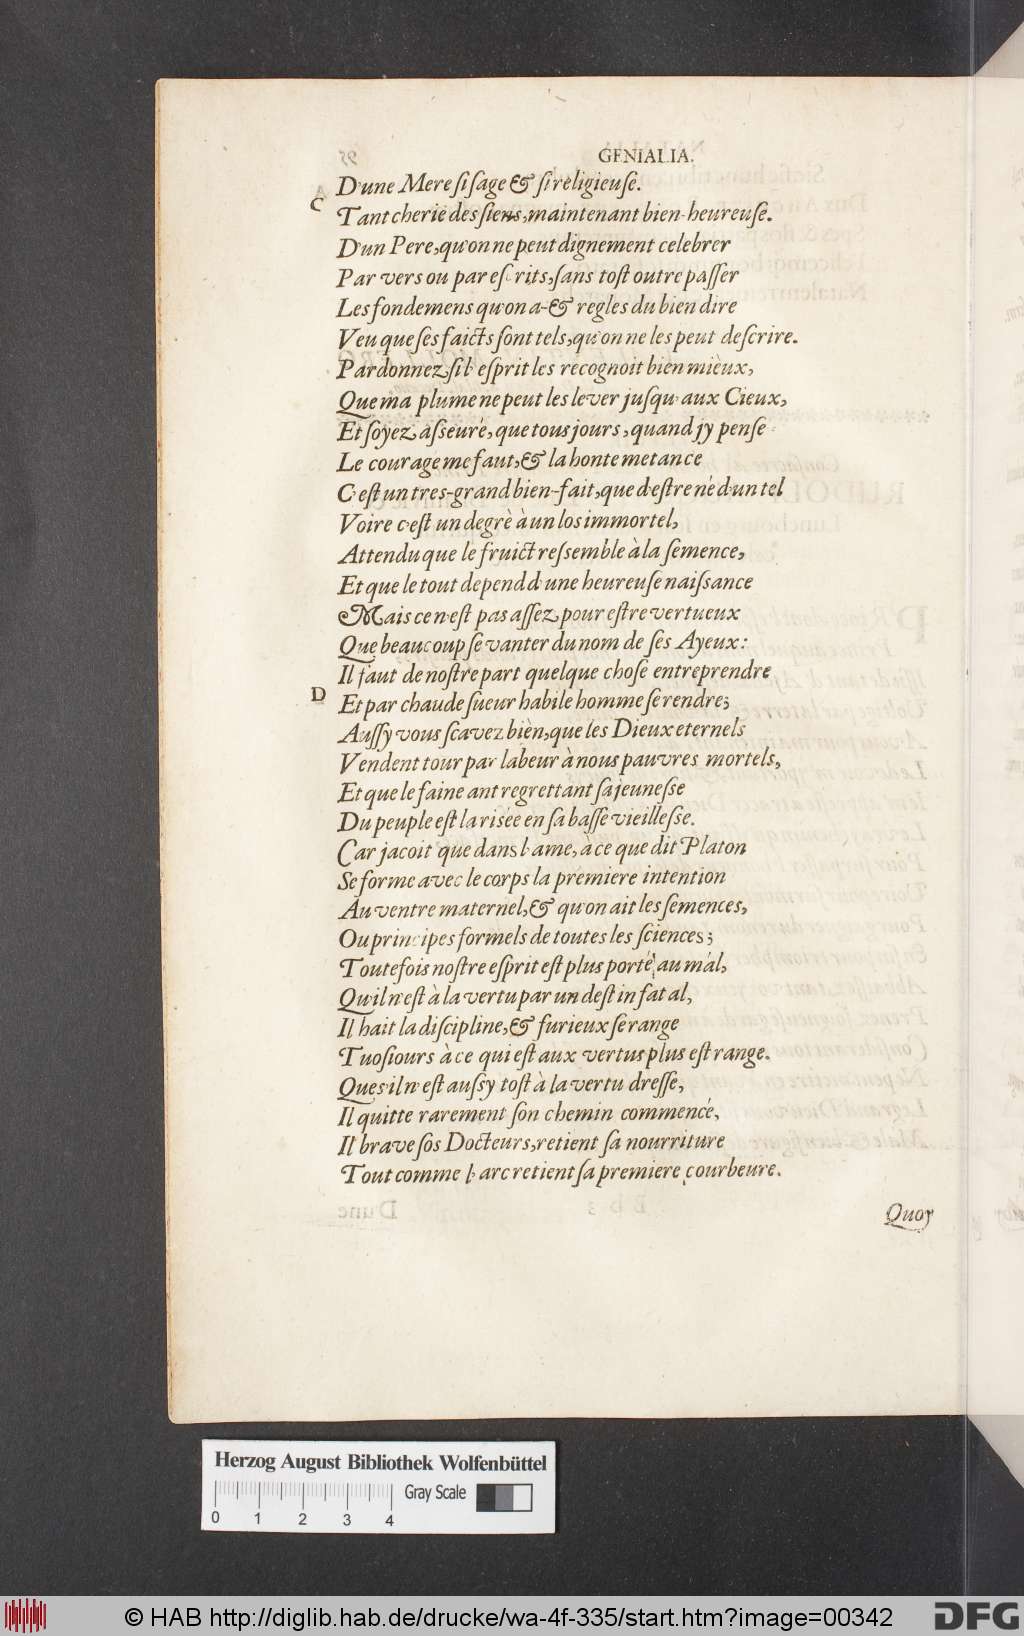 GENIALIA.
D'une Mere si sage & si religieuse.
C
Tant cherie des siens, maintenant bien-heureuse.
D'un Pere, qu'on ne peut dignement celebrer
Par vers ou par escrits, sans tost outre passer
Les fondemens qu'on a-& regles du bien dire
Veu que ses faicts sont tels, qu'on ne les peut descrire.
Pardonnez, si l'esprit les recognoit bien mieux,
Que ma plume ne peut les lever jusqu'aux Cieux,
Et soyez asseuré, que tousjours, quand j'y pense
Le courage me faut, & la honte me tance
C'est un tres-grand bien-fait, que d'estre né d'un tel
Voire c'est un degrè à un los immortel,
Attendu que le fruict ressemble à la semence,
Et que le tout depend d'une heureuse naissance
Mais ce n'est pas assez pour estre vertueux
Que beaucoup se vanter du nom de ses Ayeux:
Il faut de nostre part quelque chose entreprendre
D
Et par chaude sueur habile homme se rendre;
Aussy vous scavez bièn, que les Dieux eternels
Vendent tour par labeur à nous pauvres mortels,
Et que le faine ant regrettant sa jeunesse
Du peuple est la risée en sa basse vieillesse.
Car jacoit que dans l'ame, à ce que dit Platon
Se forme avec le corps la premiere intention
Au ventre maternel, & qu'on ait les semences,
Ou principes formels de toutes les sciences;
Toutefois nostre esprit est plus porté au mal,
Qu'il n'est à la vertu par un destin fatal,
Il hait la discipline, & furieux se range
Tuosiours à ce qui est aux vertus plus estrange.
Que s'il n'est aussy tost à la vertu dresse,
Il quitte rarement son chemin commencé,
Il brave sos Docteurs, retient sa nourriture
Tout comme l'arc retient sa premiere courbeure.
Quoy
Herzog August Bibliothek Wolfenbüttel
Gray Scale
0 1 2 3 4
© HAB http://diglib.hab.de/drucke/wa-4f-335/start.htm?image=00342
DFG